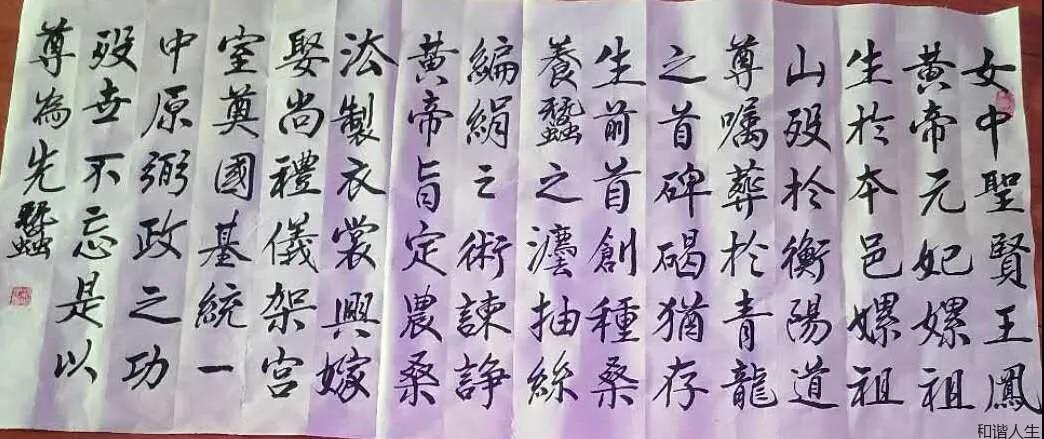 女中聖賢王鳳
黃帝元妃嫘祖
生於本邑嫘祖
山歿於衡陽道
尊囑葬於青龍
之首碑碣猶存
生前首創種桑
養蠶之灋抽絲
編絹之術諫諍
黃帝旨定農桑
法製衣裳興嫁
娶尚禮儀架宮
室奠國基統一
中原弼政之功
歿世不忘是以
尊為先蠶
和谐人生